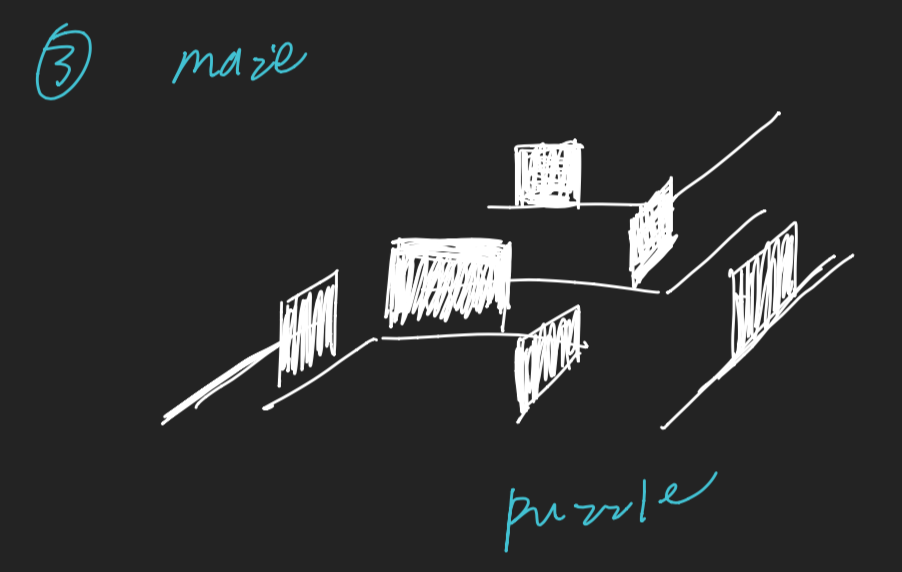 ③ maze
puzzle